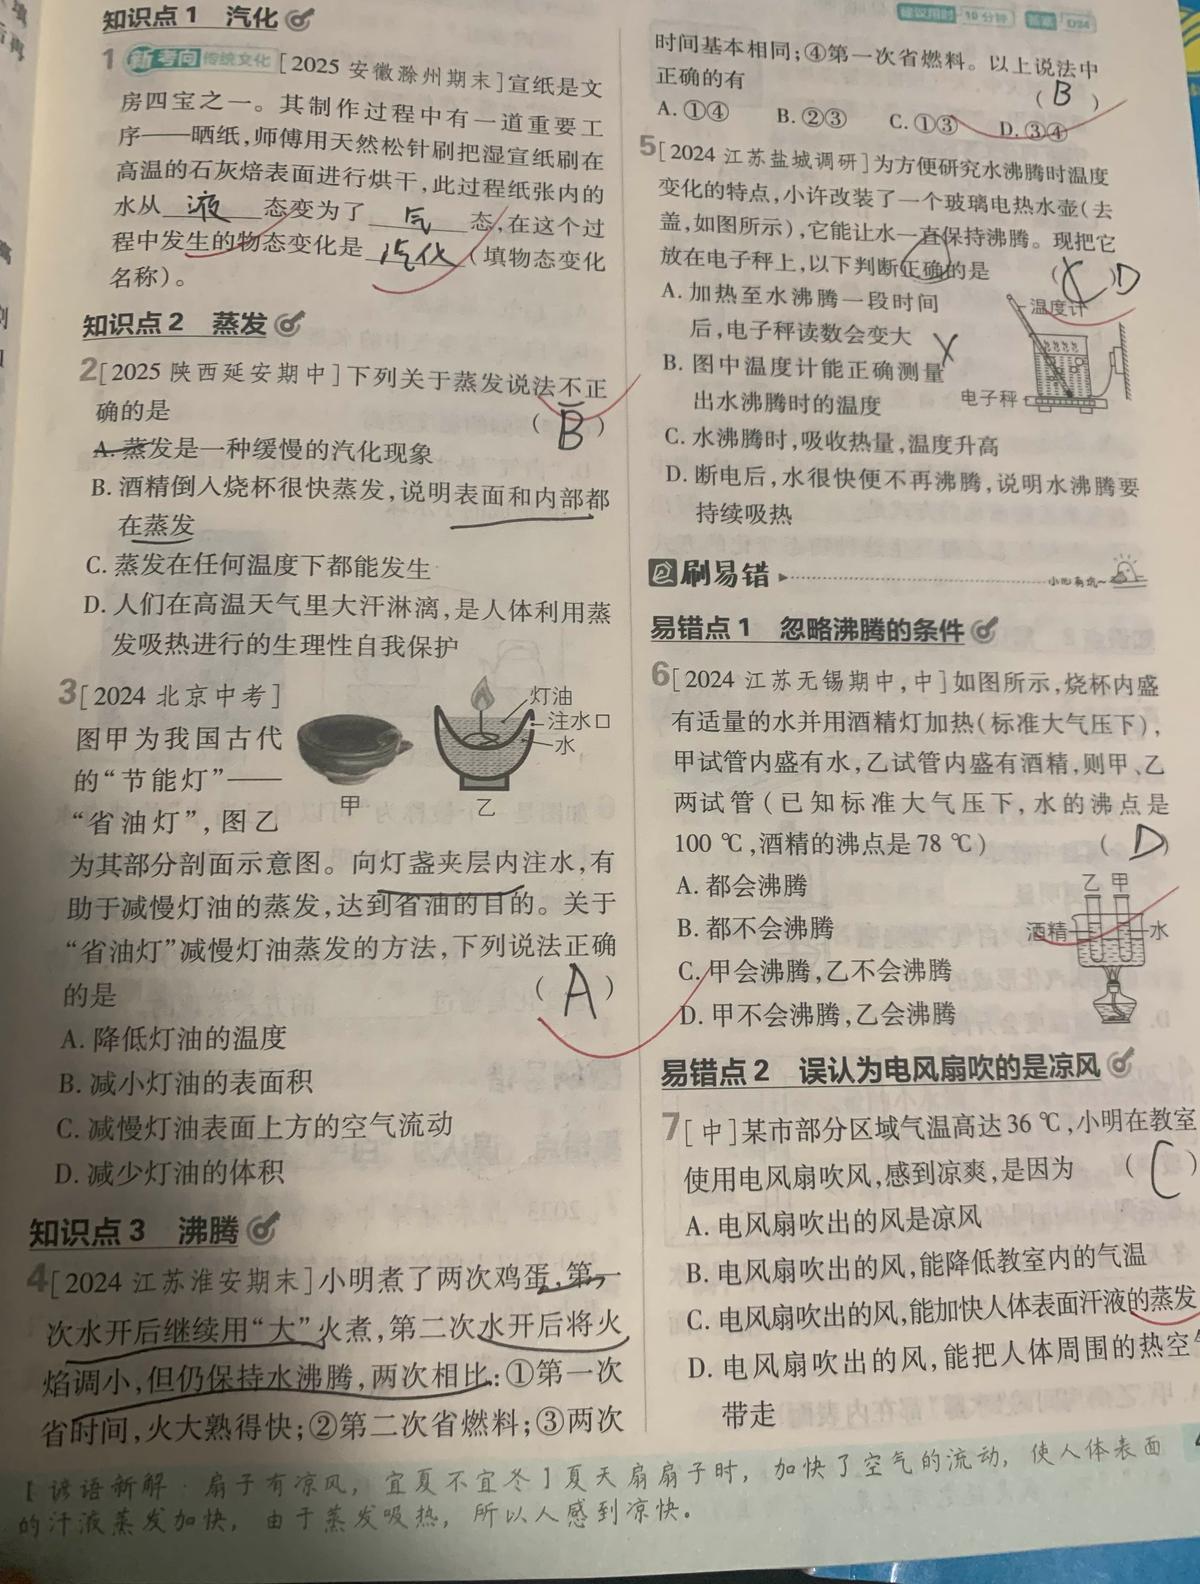 知识点1 汽化
1 新考向 传统文化 [2025 安徽滁州期末]宣纸是文
房四宝之一。其制作过程中有一道重要工
序——晒纸,师傅用天然松针刷把湿宣纸刷在
高温的石灰焙表面进行烘干,此过程纸张内的
水从 液 态变为了 气 态,在这个过
程中发生的物态变化是 汽化 (填物态变化
名称)。
知识点2 蒸发
2[2025 陕西延安期中]下列关于蒸发说法不正
确的是 ( B )
A. 蒸发是一种缓慢的汽化现象
B. 酒精倒入烧杯很快蒸发,说明表面和内部都
在蒸发
C. 蒸发在任何温度下都能发生
D. 人们在高温天气里大汗淋漓,是人体利用蒸
发吸热进行的生理性自我保护
3[2024 北京中考]
图甲为我国古代
的“节能灯”——
“省油灯”,图乙
灯油
注水口
水
甲 乙
为其部分剖面示意图。向灯盏夹层内注水,有
助于减慢灯油的蒸发,达到省油的目的。关于
“省油灯”减慢灯油蒸发的方法,下列说法正确
的是 ( A )
A. 降低灯油的温度
B. 减小灯油的表面积
C. 减慢灯油表面上方的空气流动
D. 减少灯油的体积
知识点3 沸腾
4[2024 江苏淮安期末]小明煮了两次鸡蛋,第一
次水开后继续用“大”火煮,第二次水开后将火
焰调小,但仍保持水沸腾,两次相比:①第一次
省时间,火大熟得快;②第二次省燃料;③两次
建议用时 10分钟 答案 D24
时间基本相同;④第一次省燃料。以上说法中
正确的有 ( B )
A. ①④ B. ②③ C. ①③ D. ③④
5[2024 江苏盐城调研]为方便研究水沸腾时温度
变化的特点,小许改装了一个玻璃电热水壶(去
盖,如图所示),它能让水一直保持沸腾。现把它
放在电子秤上,以下判断正确的是 ( ) D
A. 加热至水沸腾一段时间
后,电子秤读数会变大
B. 图中温度计能正确测量
出水沸腾时的温度
温度计
电子秤
C. 水沸腾时,吸收热量,温度升高
D. 断电后,水很快便不再沸腾,说明水沸腾要
持续吸热
刷易错
易错点1 忽略沸腾的条件
6[2024 江苏无锡期中,中]如图所示,烧杯内盛
有适量的水并用酒精灯加热(标准大气压下),
甲试管内盛有水,乙试管内盛有酒精,则甲、乙
两试管(已知标准大气压下,水的沸点是
100 ℃,酒精的沸点是78 ℃) ( D )
A. 都会沸腾
B. 都不会沸腾
C. 甲会沸腾,乙不会沸腾
D. 甲不会沸腾,乙会沸腾
乙 甲
酒精 水
易错点2 误认为电风扇吹的是凉风
7[中]某市部分区域气温高达36 ℃,小明在教室
使用电风扇吹风,感到凉爽,是因为 ( C )
A. 电风扇吹出的风是凉风
B. 电风扇吹出的风,能降低教室内的气温
C. 电风扇吹出的风,能加快人体表面汗液的蒸发
D. 电风扇吹出的风,能把人体周围的热空气
带走
【谚语新解·扇子有凉风,宜夏不宜冬】夏天扇扇子时,加快了空气的流动,使人体表面
的汗液蒸发加快,由于蒸发吸热,所以人感到凉快。